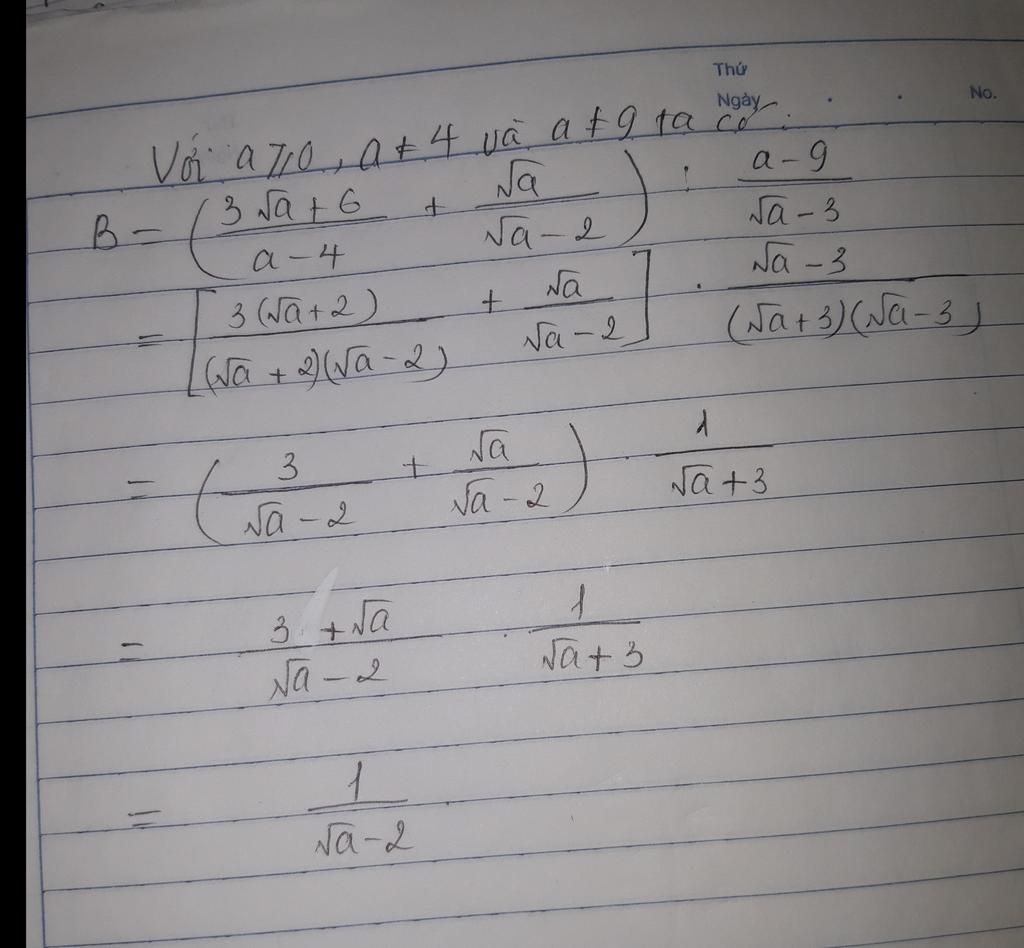 Thứ
Ngày . . No.
Với a ⩾ 0, a ≠ 4 và a ≠ 9 ta có:
B = ( (3√a + 6)/(a - 4) + √a/(√a - 2) ) : (a - 9)/(√a - 3)
= [ 3(√a + 2)/((√a + 2)(√a - 2)) + √a/(√a - 2) ] . (√a - 3)/((√a + 3)(√a - 3))
= ( 3/(√a - 2) + √a/(√a - 2) ) . 1/(√a + 3)
= (3 + √a)/(√a - 2) . 1/(√a + 3)
= 1/(√a - 2) .